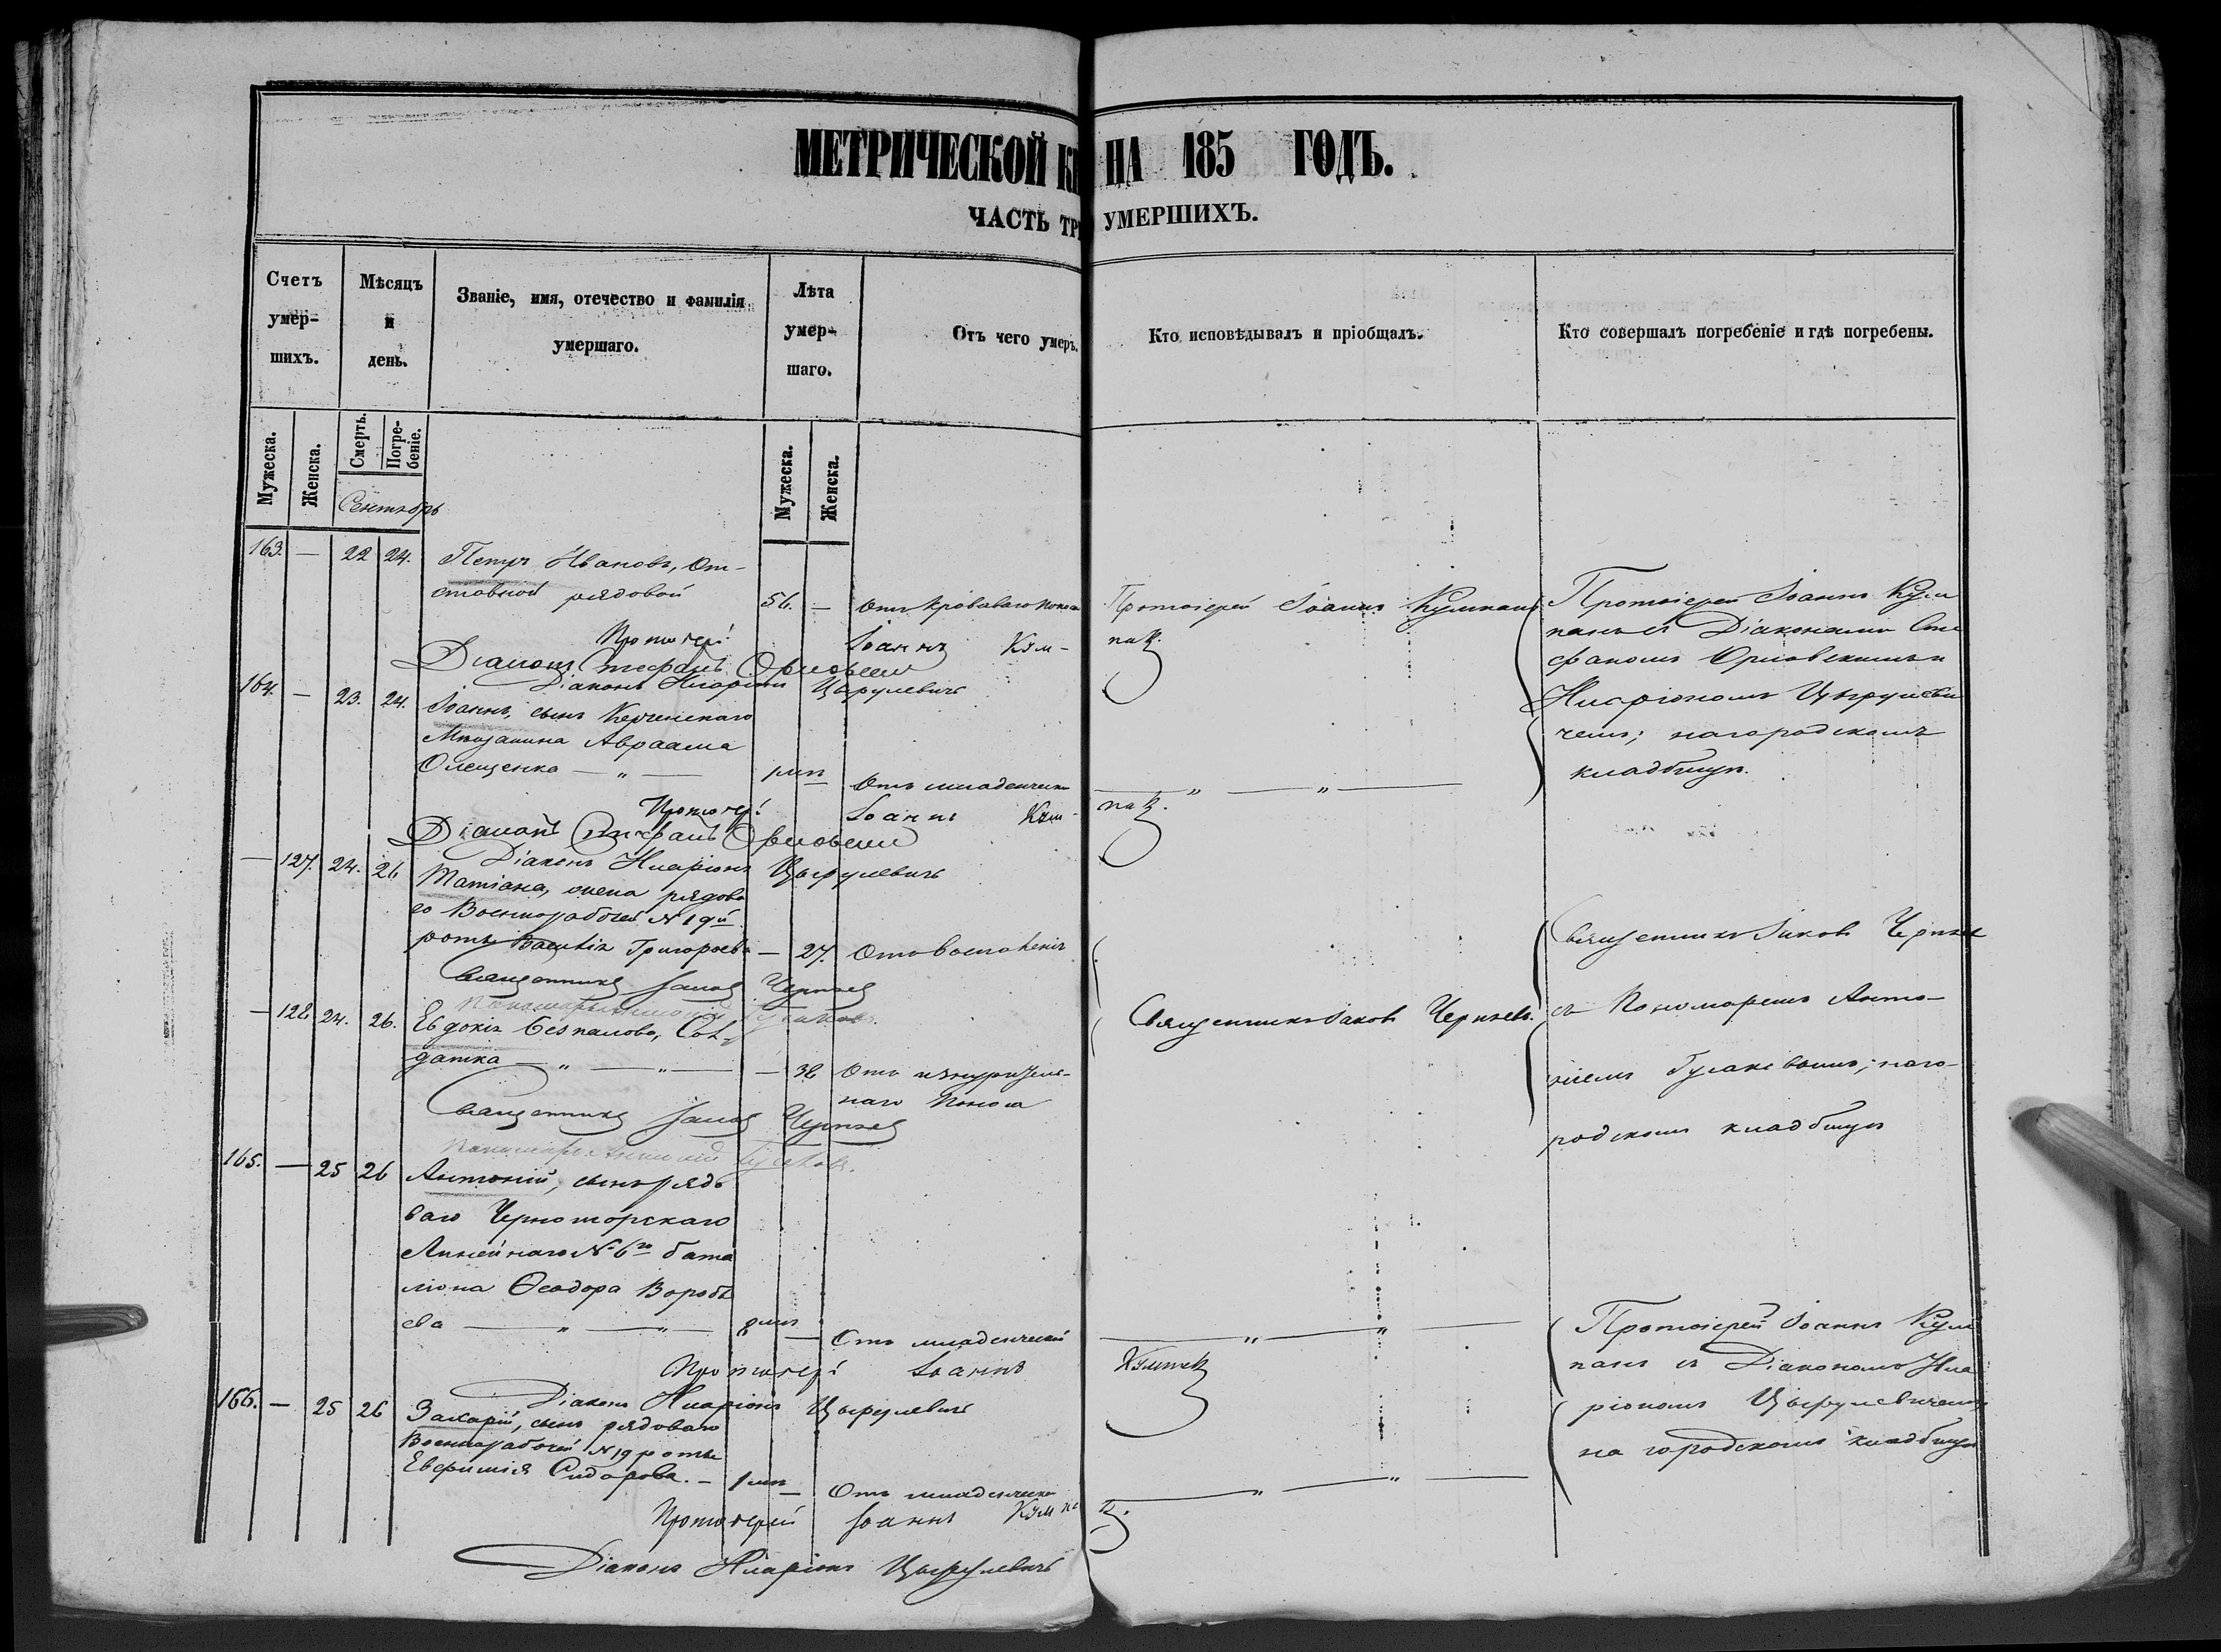 МЕТРИЧЕСКОЙ КН НА 185 ГОДЪ.
ЧАСТЬ ТРЕ УМЕРШИХЪ.
Счетъ умер- шихъ.
Мѣсяцъ и день.
Званіе, имя, отечество и фамилія умершаго.
Лѣта умер- шаго.
Отъ чего умеръ.
Кто исповѣдывалъ и пріобщалъ.
Кто совершалъ погребеніе и гдѣ погребены.
Мужеска.
Женска.
Смерть.
Погре- беніе.
Мужеска.
Женска.
Сентябрь
163. — 22 24. Петръ Ивановъ, От-
ставной рядовой 56. — Отъ кроваваго поноса
Протоіерей Іоаннъ Кумпанъ
Протоіерей Іоаннъ Кум
панъ съ Діаконами Сте
фаномъ Орловскимъ и
Иларіономъ Цырулеви
чемъ; на городскомъ
кладбищѣ.
Протоіерей Іоаннъ Кум-
панъ
Діаконъ Стефанъ Орловскій
Діаконъ Иларіонъ Цырулевичъ
164. — 23. 24. Іоаннъ, сынъ Керченскаго
Мѣщанина Авраама
Олещенка — „ — 1 мѣс — Отъ младенческ — „ — „ —
Протоіерей Іоаннъ Кум-
панъ.
Діаконъ Стефанъ Орловскій
Діаконъ Иларіонъ Цырулевичъ
— 127. 24. 26 Татіана, жена рядова
го Военнорабочей № 19й
роты Василія Григорьева — 27. Отъ воспаленія
Священникъ Іаковъ Черняев
Священникъ Іаковъ Черняевъ
Пономарь Антоній Гулаковъ.
— 128. 24. 26. Евдокія Безпалова, Сол-
датка — „ — „ — — 38 Отъ изнурител-
наго поноса
Священникъ Іаковъ Черняевъ.
съ Пономаремъ Анто-
ніемъ Гулаковымъ; на го-
родскомъ кладбищѣ
Священникъ Іаковъ Черняевъ
Пономарь Антоній Гулаковъ.
165. — 25 26 Антоній, сынъ рядо
ваго Черноморскаго
Линейнаго № 6го бата
ліона Ѳеодора Воробь
ева — „ — „ — 8 мѣс — Отъ младенческой — „ — „ —
Протоіерей Іоаннъ Кум
панъ съ Діакономъ Ила
ріономъ Цырулевичемъ
на городскомъ кладбищѣ
Протоіерей Іоаннъ Кумпанъ
Діаконъ Иларіонъ Цырулевичъ
166. — 25 26 Захарій, сынъ рядоваго
Военнорабочей № 19 роты
Евфимія Сидорова. — 1 мѣс — Отъ младенческ — „ — „ —
Протоіерей Іоаннъ Кумпанъ.
Діаконъ Иларіонъ Цырулевичъ